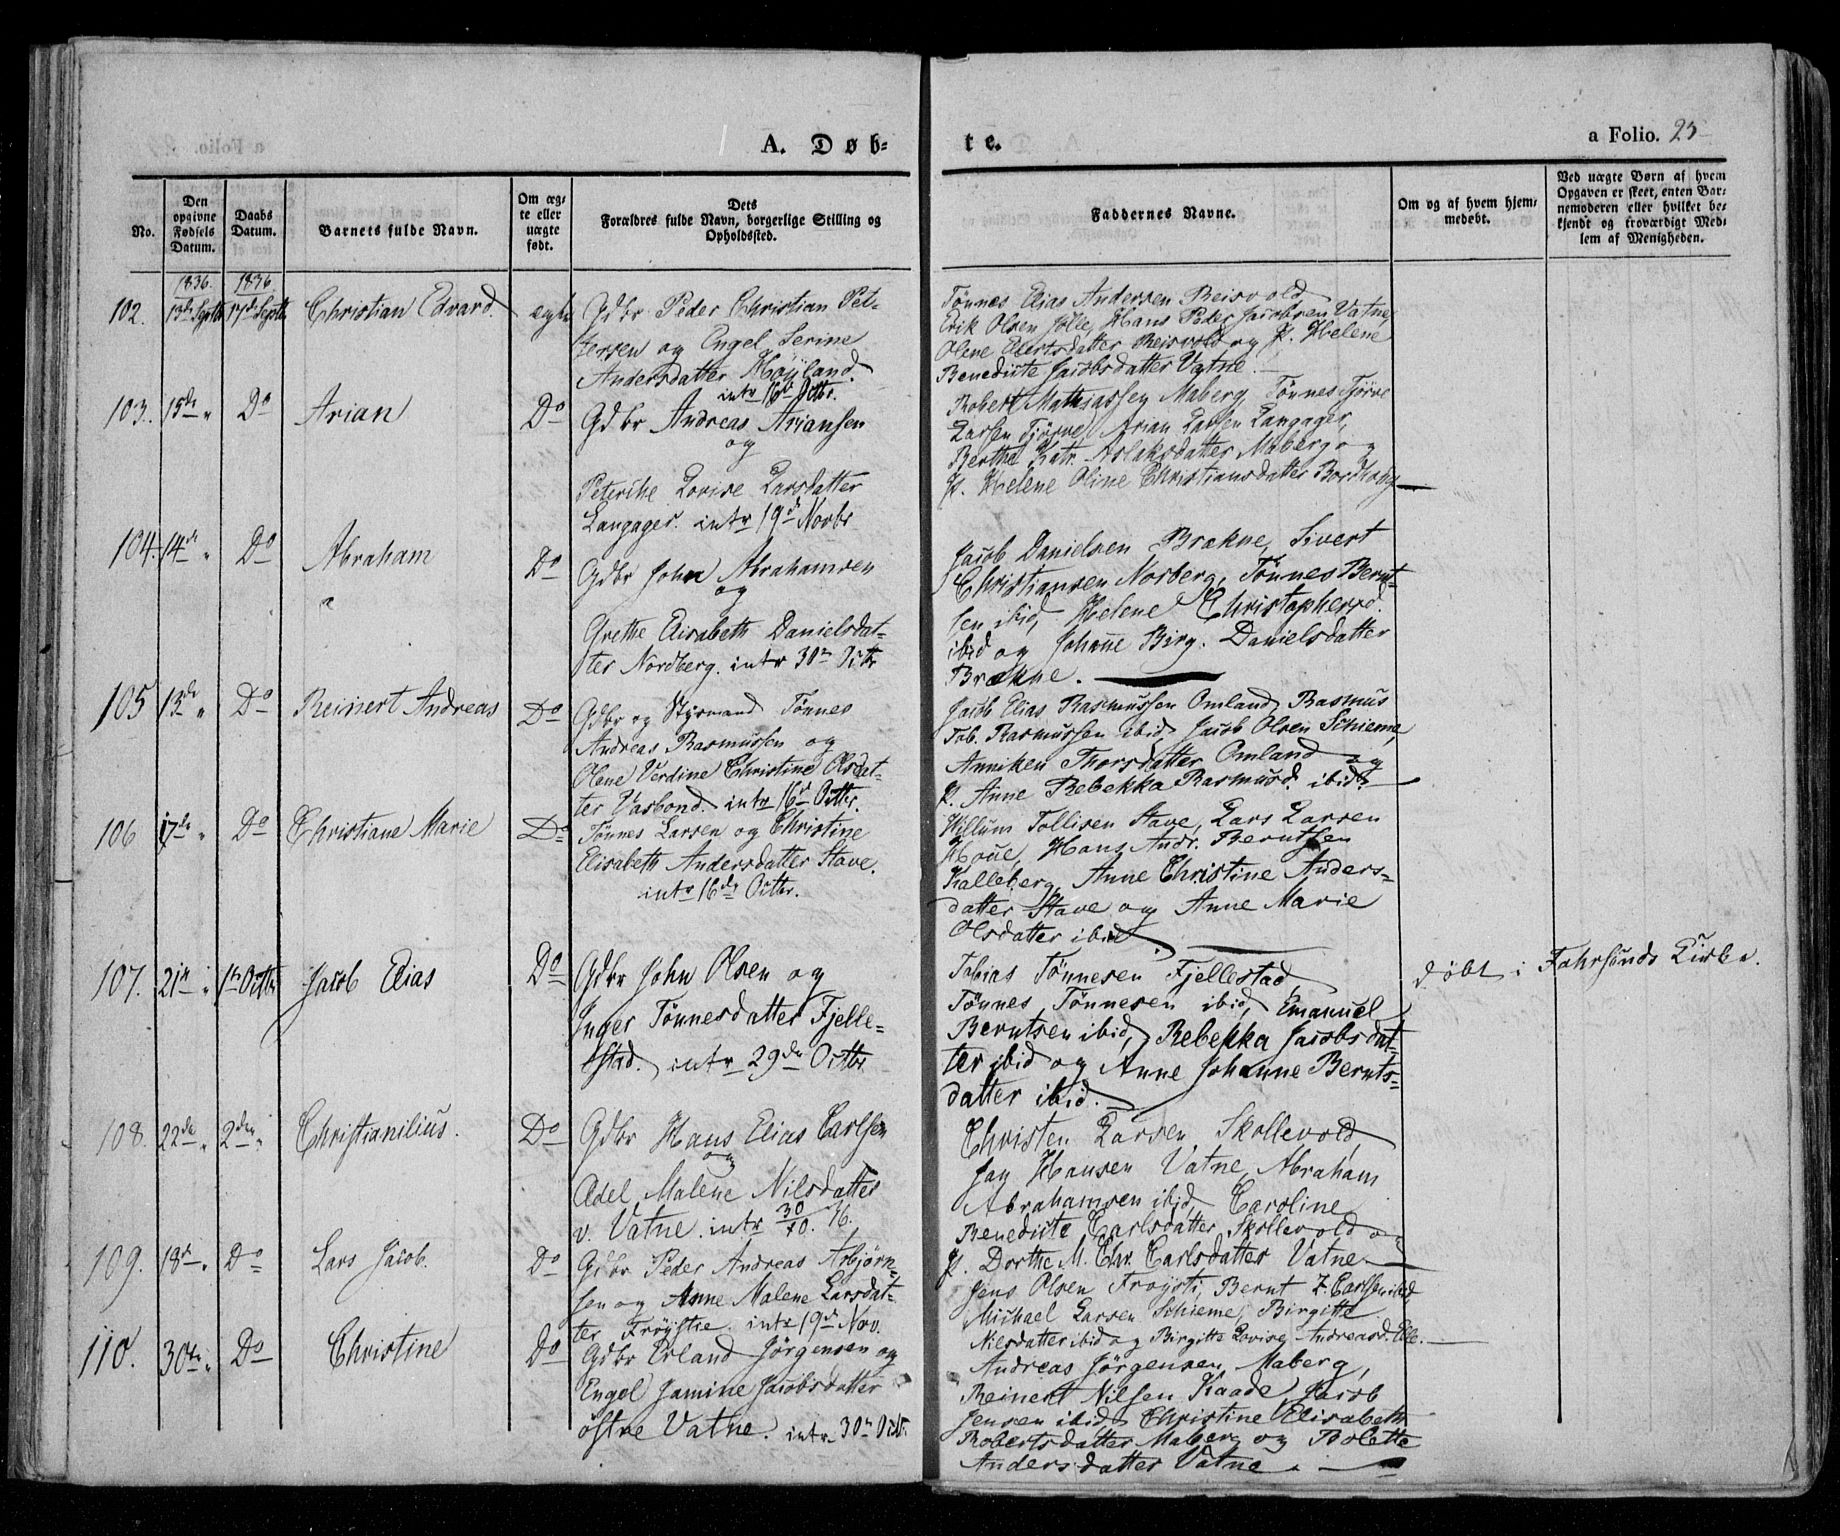 A. Døb-
te.
a Folio. 25
No.
Den opgivne Fødsels Datum.
Daabs Datum.
Barnets fulde Navn.
Om ægte eller uægte født.
Dets Forældres fulde Navn, borgerlige Stilling og Opholdssted.
Faddernes Navne.
Om og af hvem hjemmedøbt.
Ved uægte Børn af hvem Opgaven er skeet, enten Barnemoderen eller hvilket bekjendt og troværdigt Medlem af Menigheden.
1836. 1836
102. 13de Septbr 17de Septbr Christian Edvard. ægte Gdbr Peder Christian Pet-
tersen og Engel Serine
Andersdatter Høÿland.
intr 16de Octbr.
Tönnes Elias Andersen Reisvold
Erik Olsen Jölle, Hans Peder Jacobsen Vatne,
Olene Eilertsdatter Reisvold og P. Helene
Benedicte Jacobsdatter Vatne.
103. 15de " Do Arian Do Gdbr Andreas Ariansen
og
Petrike Lovise Larsdatter
Langager. intr 19de Novbr
Robert Mathiassen Maberg, Tönnes Tjörve
Larsen Tjörve, Arian Larsen Langager,
Berthe Katr. Aslaksdatter Maberg og
P. Helene Oline Christiansdatter
104. 14de " Do Abraham Do Gdbr John Abrahamsen
og
Grethe Elisabeth Danielsdat-
ter Nordberg. intr 30te Octbr
Jacob Danielsen Brækne, Sivert
Christiansen Norberg, Tönnes Bernt-
sen ibid, Helene Christophersd.
ibid og Johanne Birg. Danielsdatter
Brækne.
105 13de " Do Reinert Andreas Do Gdbr og Styrmand Tönnes
Andreas Rasmussen og
Olene Verdine Christine Olsdat-
ter Vasbond. intr 16de Octbr.
Jacob Elias Rasmussen Omland, Rasmus
Tob. Rasmussen ibid, Jacob Olsen Schieme,
Anniken Thorsdatter Omland og
P. Anne Rebekka Rasmusd. ibid.
106 17de " Do Christiane Marie Do Tönnes Larsen og Christine
Elisabeth Andersdatter Stave.
intr 16de Octbr.
Willum Tollisen Stave, Lars Larsen
Houe, Hans Andr. Berntsen
Kalleberg, Anne Christine Anders-
datter Stave og Anne Marie
Olsdatter ibid.
107. 21de " 1ste Octbr Jacob Elias Do Gdbr John Olsen og
Inger Tönnesdatter Fjelle-
stad. intr 29de Octbr
Tobias Tönnesen Fjellestad
Tönnes Tönnesen ibid, Emanuel
Berntsen ibid, Rebekka Jacobsdat-
ter ibid og Anne Johanne Bernts-
datter ibid.
døbt i Fahrsunds Kirke.
108. 22de " 2den " Christianilius. Do Gdbr Hans Elias Carlsen
og
Adel Malene Nilsdatter
v. Vatne. intr 30/10. 36.
Christen Larsen Skollevold,
Jan Hansen Vatne, Abraham
Abrahamsen ibid, Caroline
Benedicte Carlsdatter Skollevold og
P. Dorthe M. Chr. Carlsdatter Vatne.
109. 18de " Do Lars Jacob. Do Gdbr Peder Andreas Asbjörn-
sen og Anne Malene Larsdat-
ter Fröÿstie. intr 19de Nov.
Jens Olsen Fröysti, Bernt Z. Carlsen ibid,
Michael Larsen Schieme, Birgitte
Nilsdatter ibid og Birgitte Lovise Andreasd.
110. 30te " Do Christine Do Gdbr Erland Jörgensen og
Engel Jamine Jacobsdatter
östre Vatne. intr 30te Octbr.
Andreas Jörgensen Maberg,
Reinert Nilsen Kaade, Jacob
Jensen ibid, Christine Elisabeth
Robertsdatter Maberg og Bolette
Andersdatter Vatne.